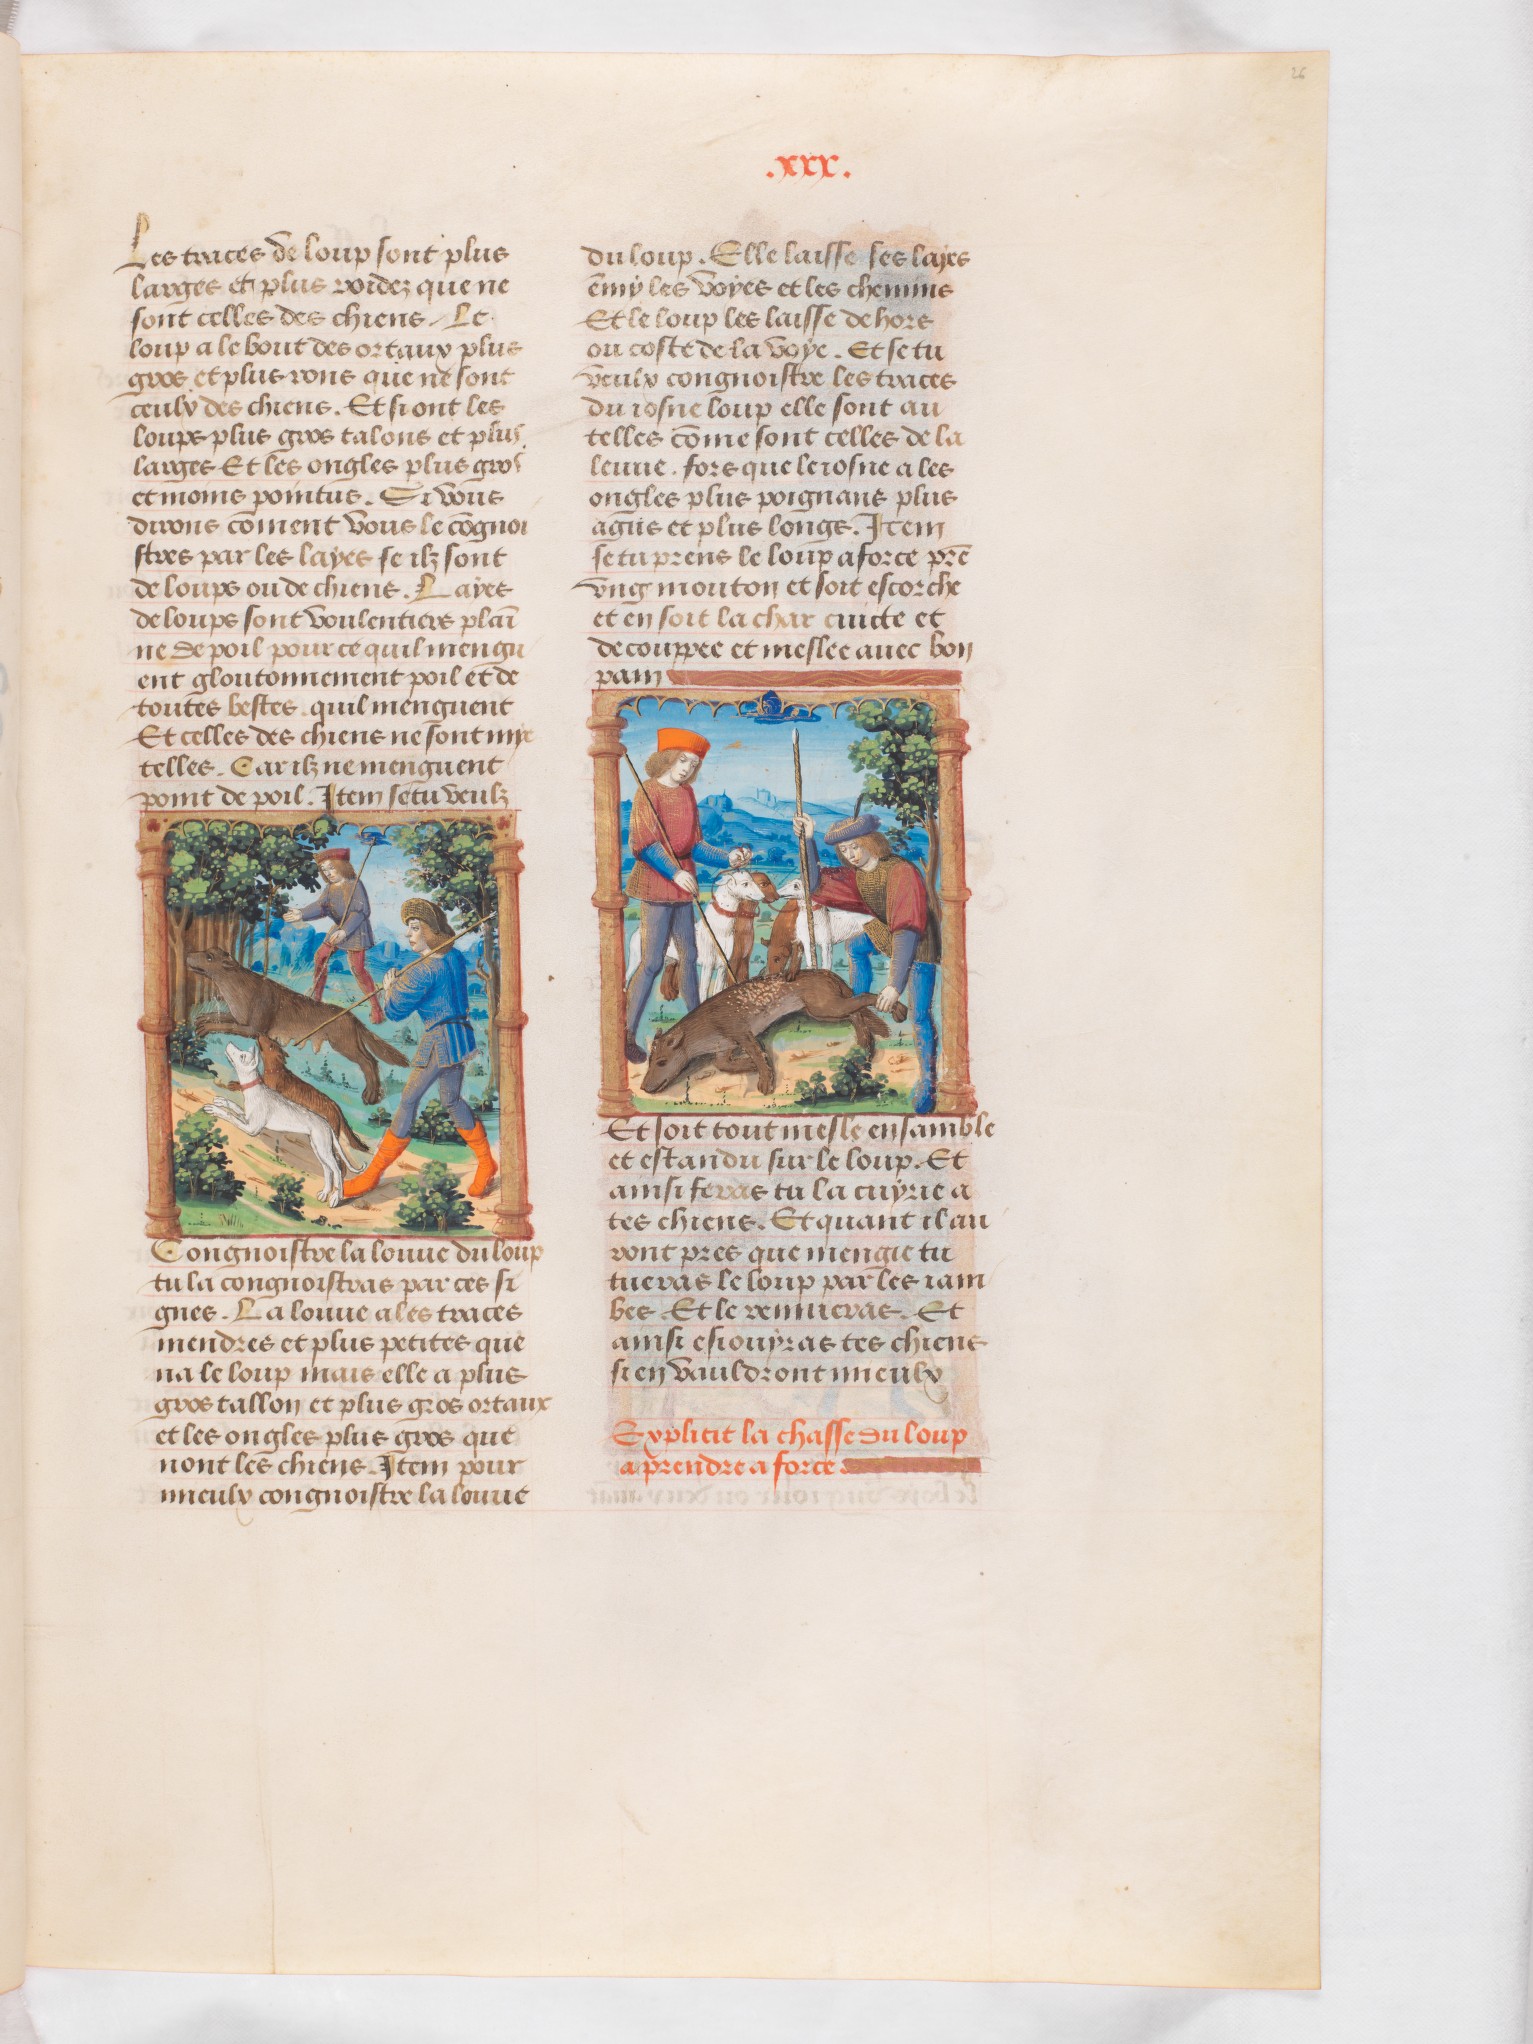 26
.xxx.
Les traces de loup sont plus
larges et plus roidez que ne
sont celles des chiens. Le
loup a le bout des ortaux plus
gros et plus rons que ne sont
ceulx des chiens. Et si ont les
loups plus gros talons et plus
larges Et les ongles plus gros
et moins pointus. Si vous
dirons cōment vous le cōgnoi
stres par les layes se ilz sont
de loups ou de chiens. Layes
de loups sont voulentiers plai
ne de poil pour ce quil mengu
ent gloutonnement poil et de
toutes bestes quil menguent
Et celles des chiens ne sont mye
telles. Car ilz ne menguent
point de poil. Item se tu veulz
Congnoistre la louue du loup
tu la congnoistras par ces si
gnes. La louue a les traces
mendres et plus petites que
na le loup mais elle a plus
gros tallon et plus gros ortaux
et les ongles plus gros que
nont les chiens. Item pour
mieulx congnoistre la louue
du loup. Elle laisse ses layes
ēmy les voyes et les chemins
Et le loup les laisse dehors
ou coste de la voye. Et se tu
veulx congnoistre les traces
du iosne loup elle sont au
telles cōme sont celles de la
leuue. fors que le iosne a les
ongles plus poignans plus
agus et plus longs. Item
se tu prens le loup a force prē
vng mouton et soit escorche
et en soit la char cuicte et
decouppee et meslee auec bon
pain
Et soit tout mesle ensamble
et estandu sur le loup. Et
ainsi feras tu la cuyrie a
tes chiens. Et quant il au
ront pres que mengie tu
tueras le loup par les iam
bes. Et le renuieras. Et
ainsi esiouyras tes chiens
si en vauldront mieulx
Explicit la chasse du loup
a prendre a force.